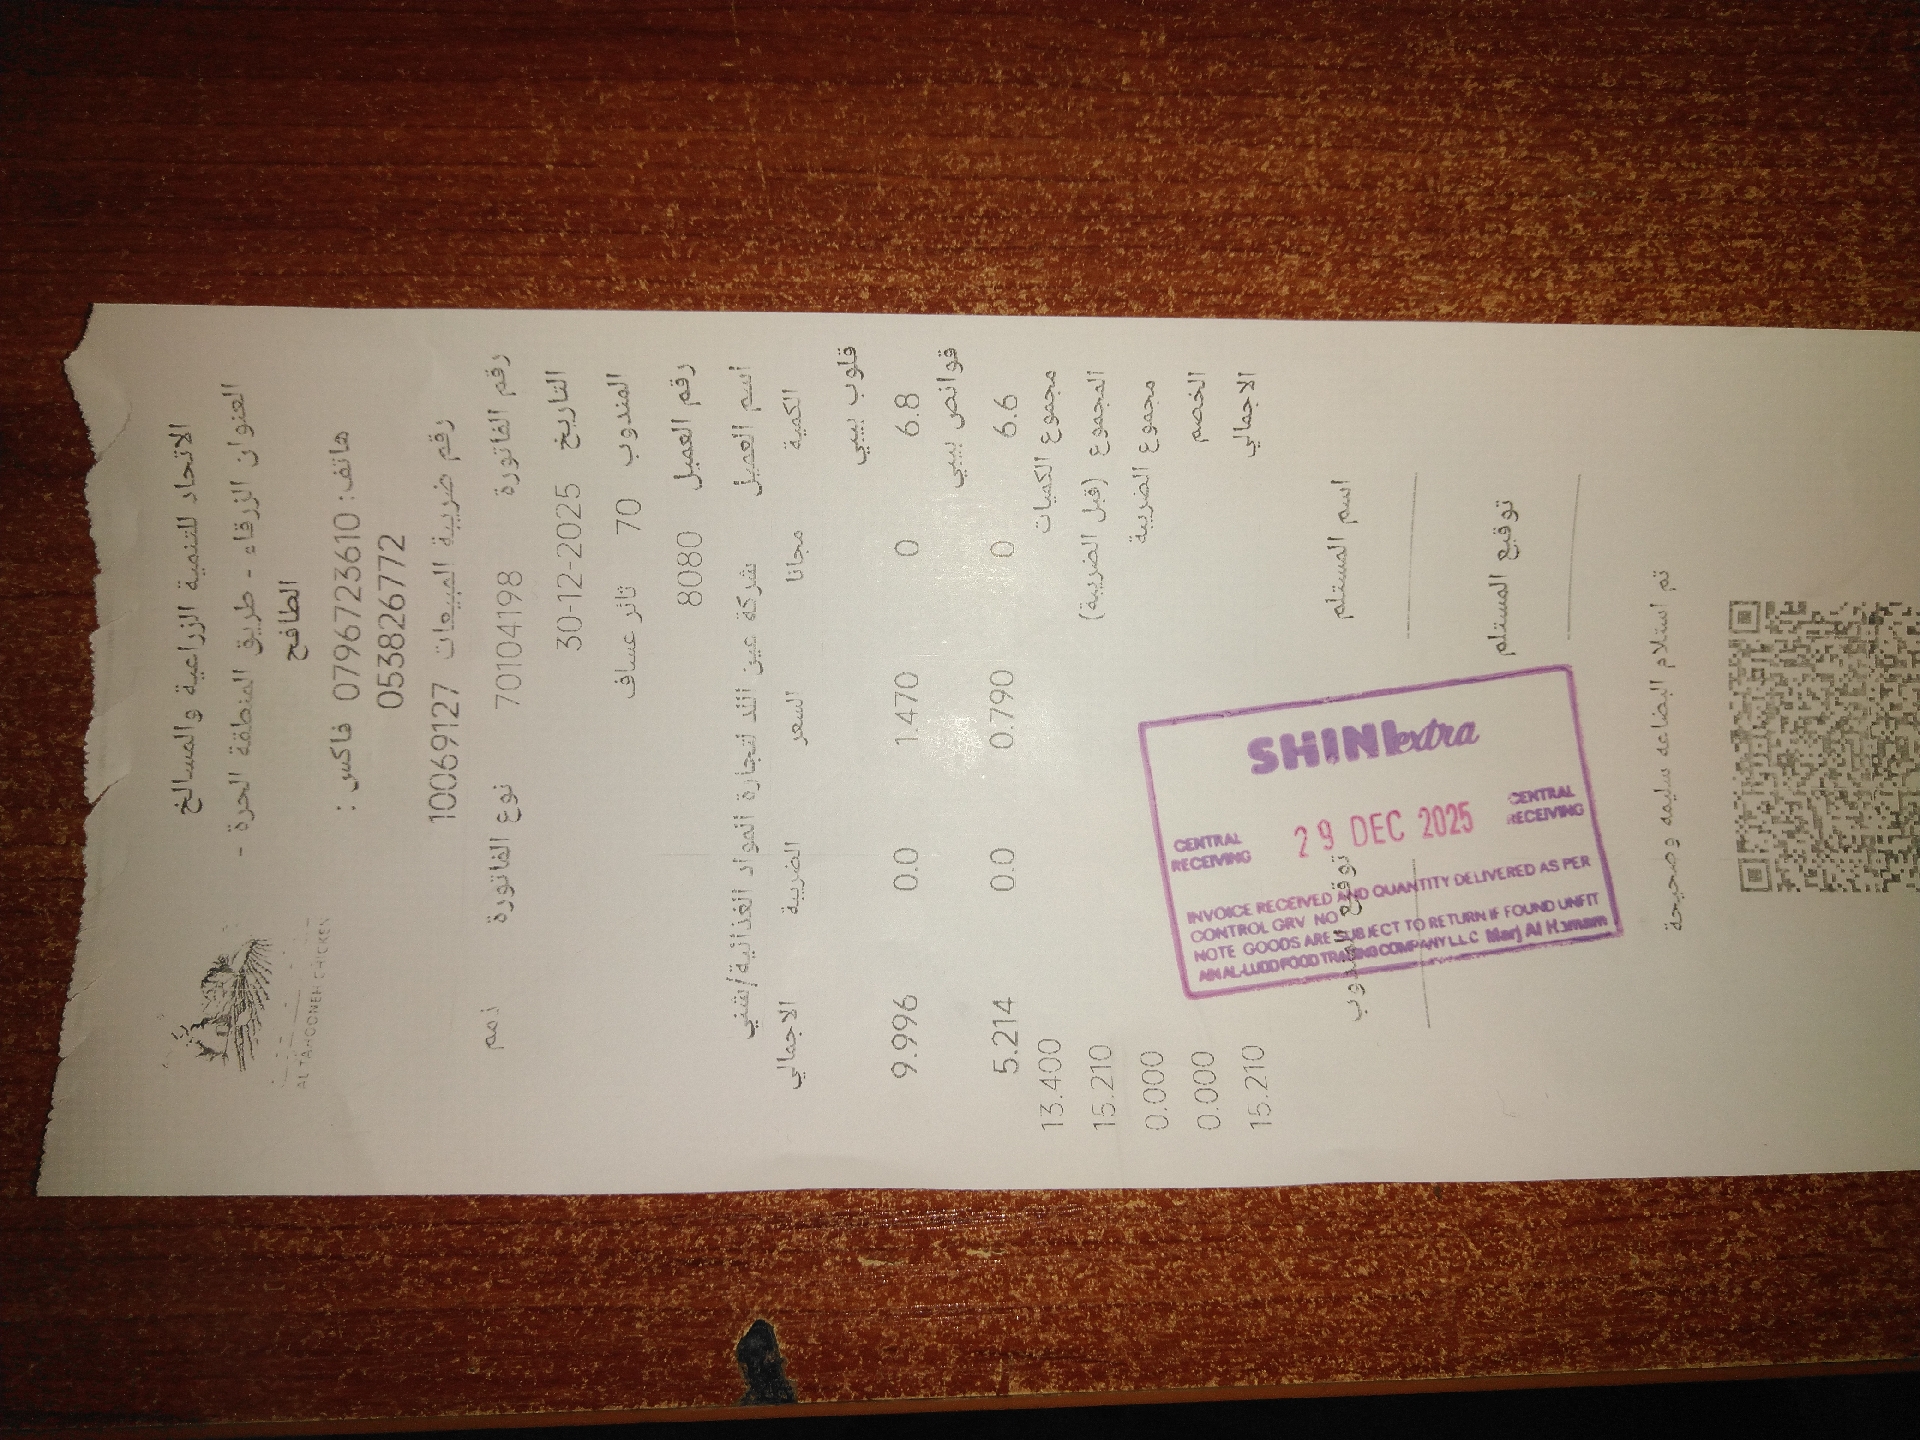 AL TAHOONEH CHICKEN
الاتحاد للتنمية الزراعية والمسالخ
العنوان الزرقاء - طريق المنطقة الحرة -
الطافح
هاتف: 0796723610 فاكس :
0538826772
رقم ضريبة المبيعات 10069127
رقم الفاتورة 70104198 نوع الفاتورة ذمم
التاريخ 30-12-2025
المندوب 70 ثائر عساف
رقم العميل 8080
اسم العميل شركة عين اللد لتجارة المواد الغذائية/شيني
الكمية مجانا السعر الضريبة الاجمالي
قلوب بيبي
6.8 0 1.470 0.0 9.996
قوانص بيبي
6.6 0 0.790 0.0 5.214
مجموع الكميات 13.400
المجموع (قبل الضريبة) 15.210
مجموع الضريبة 0.000
الخصم 0.000
الاجمالي 15.210
SHINI extra
CENTRAL RECEIVING
29 DEC 2025
CENTRAL RECEIVING
INVOICE RECEIVED AND QUANTITY DELIVERED AS PER
CONTROL GRV NO
NOTE GOODS ARE SUBJECT TO RETURN IF FOUND UNFIT
AIN AL-LUDD FOOD TRADING COMPANY L.L.C Marj Al Hamam
اسم المستلم توقيع المندوب
توقيع المستلم
تم استلام البضاعه سليمه وصحيحة